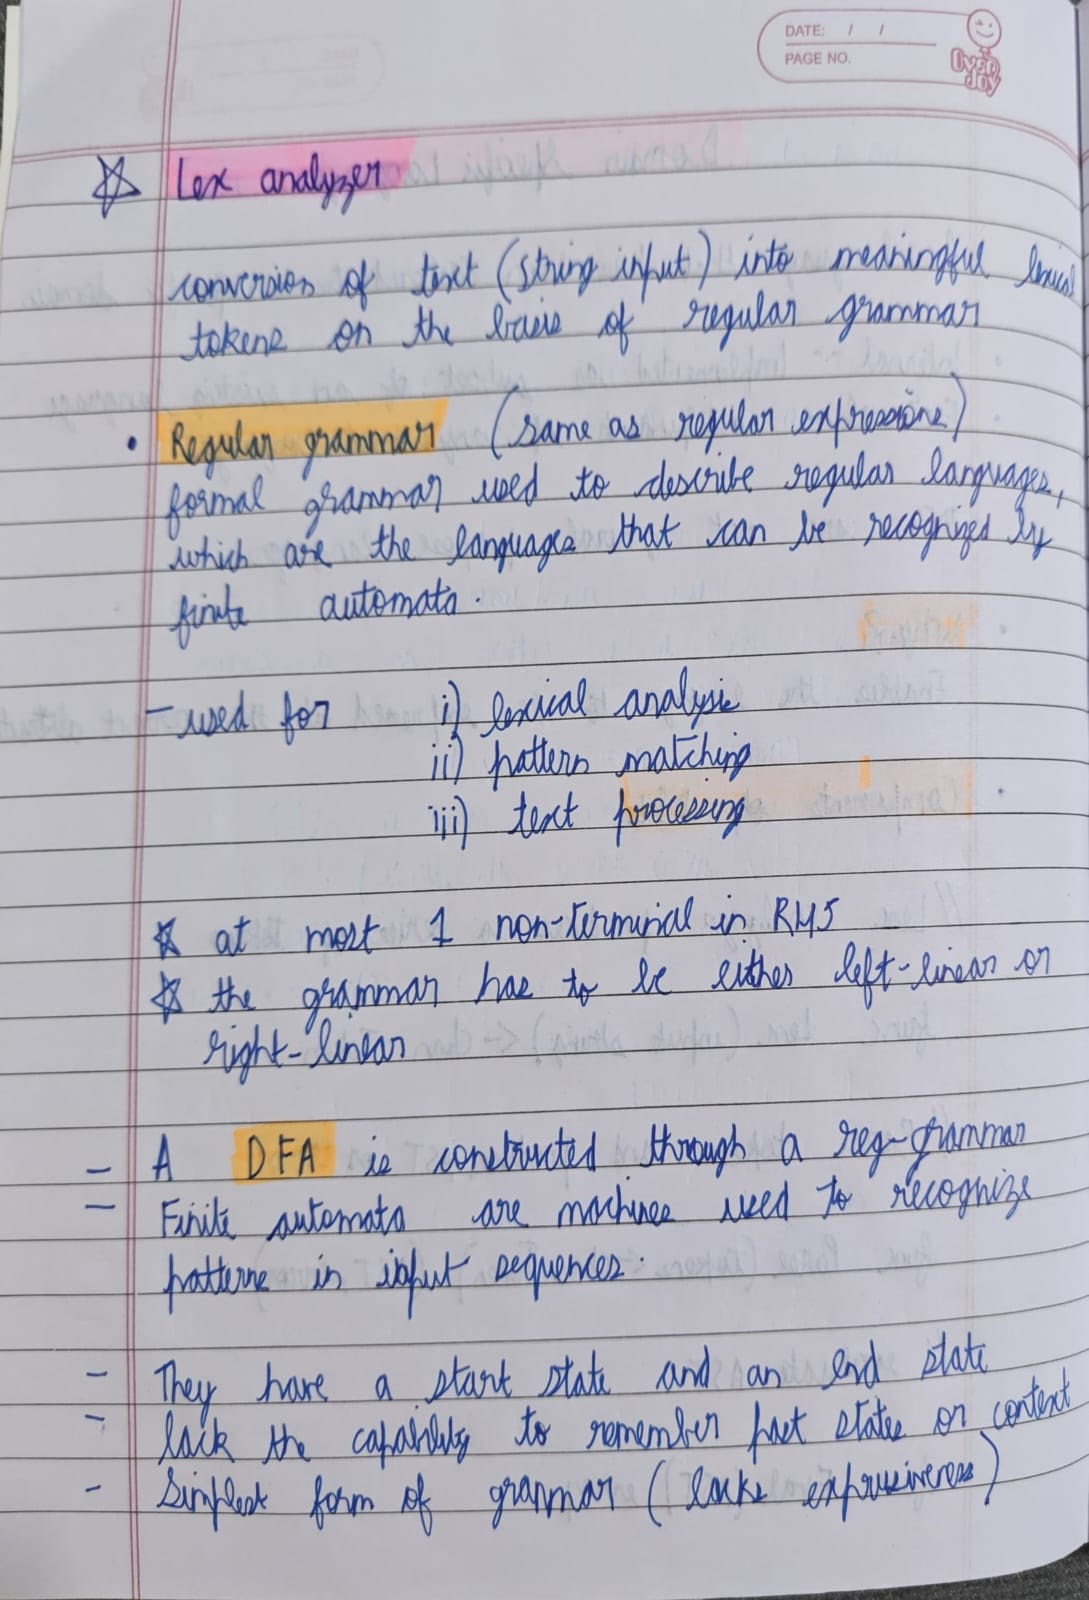 DATE: / /
PAGE NO.
OVER JOY
Lex analyzer
conversion of text (string input) into meaningful lexical
tokens on the basis of regular grammar
• Regular grammar (same as regular expressions)
formal grammar used to describe regular languages,
which are the languages that can be recognized by
finite automata.
- used for i) lexical analysis
ii) pattern matching
iii) text processing
at most 1 non-terminal in RHS
the grammar has to be either left-linear or
right-linear
- A DFA is constructed through a reg-grammar
- Finite automata are machines used to recognize
patterns in input sequences.
- They have a start state and an end state
- lack the capability to remember past states or context
- Simplest form of grammar (lacks expressiveness)